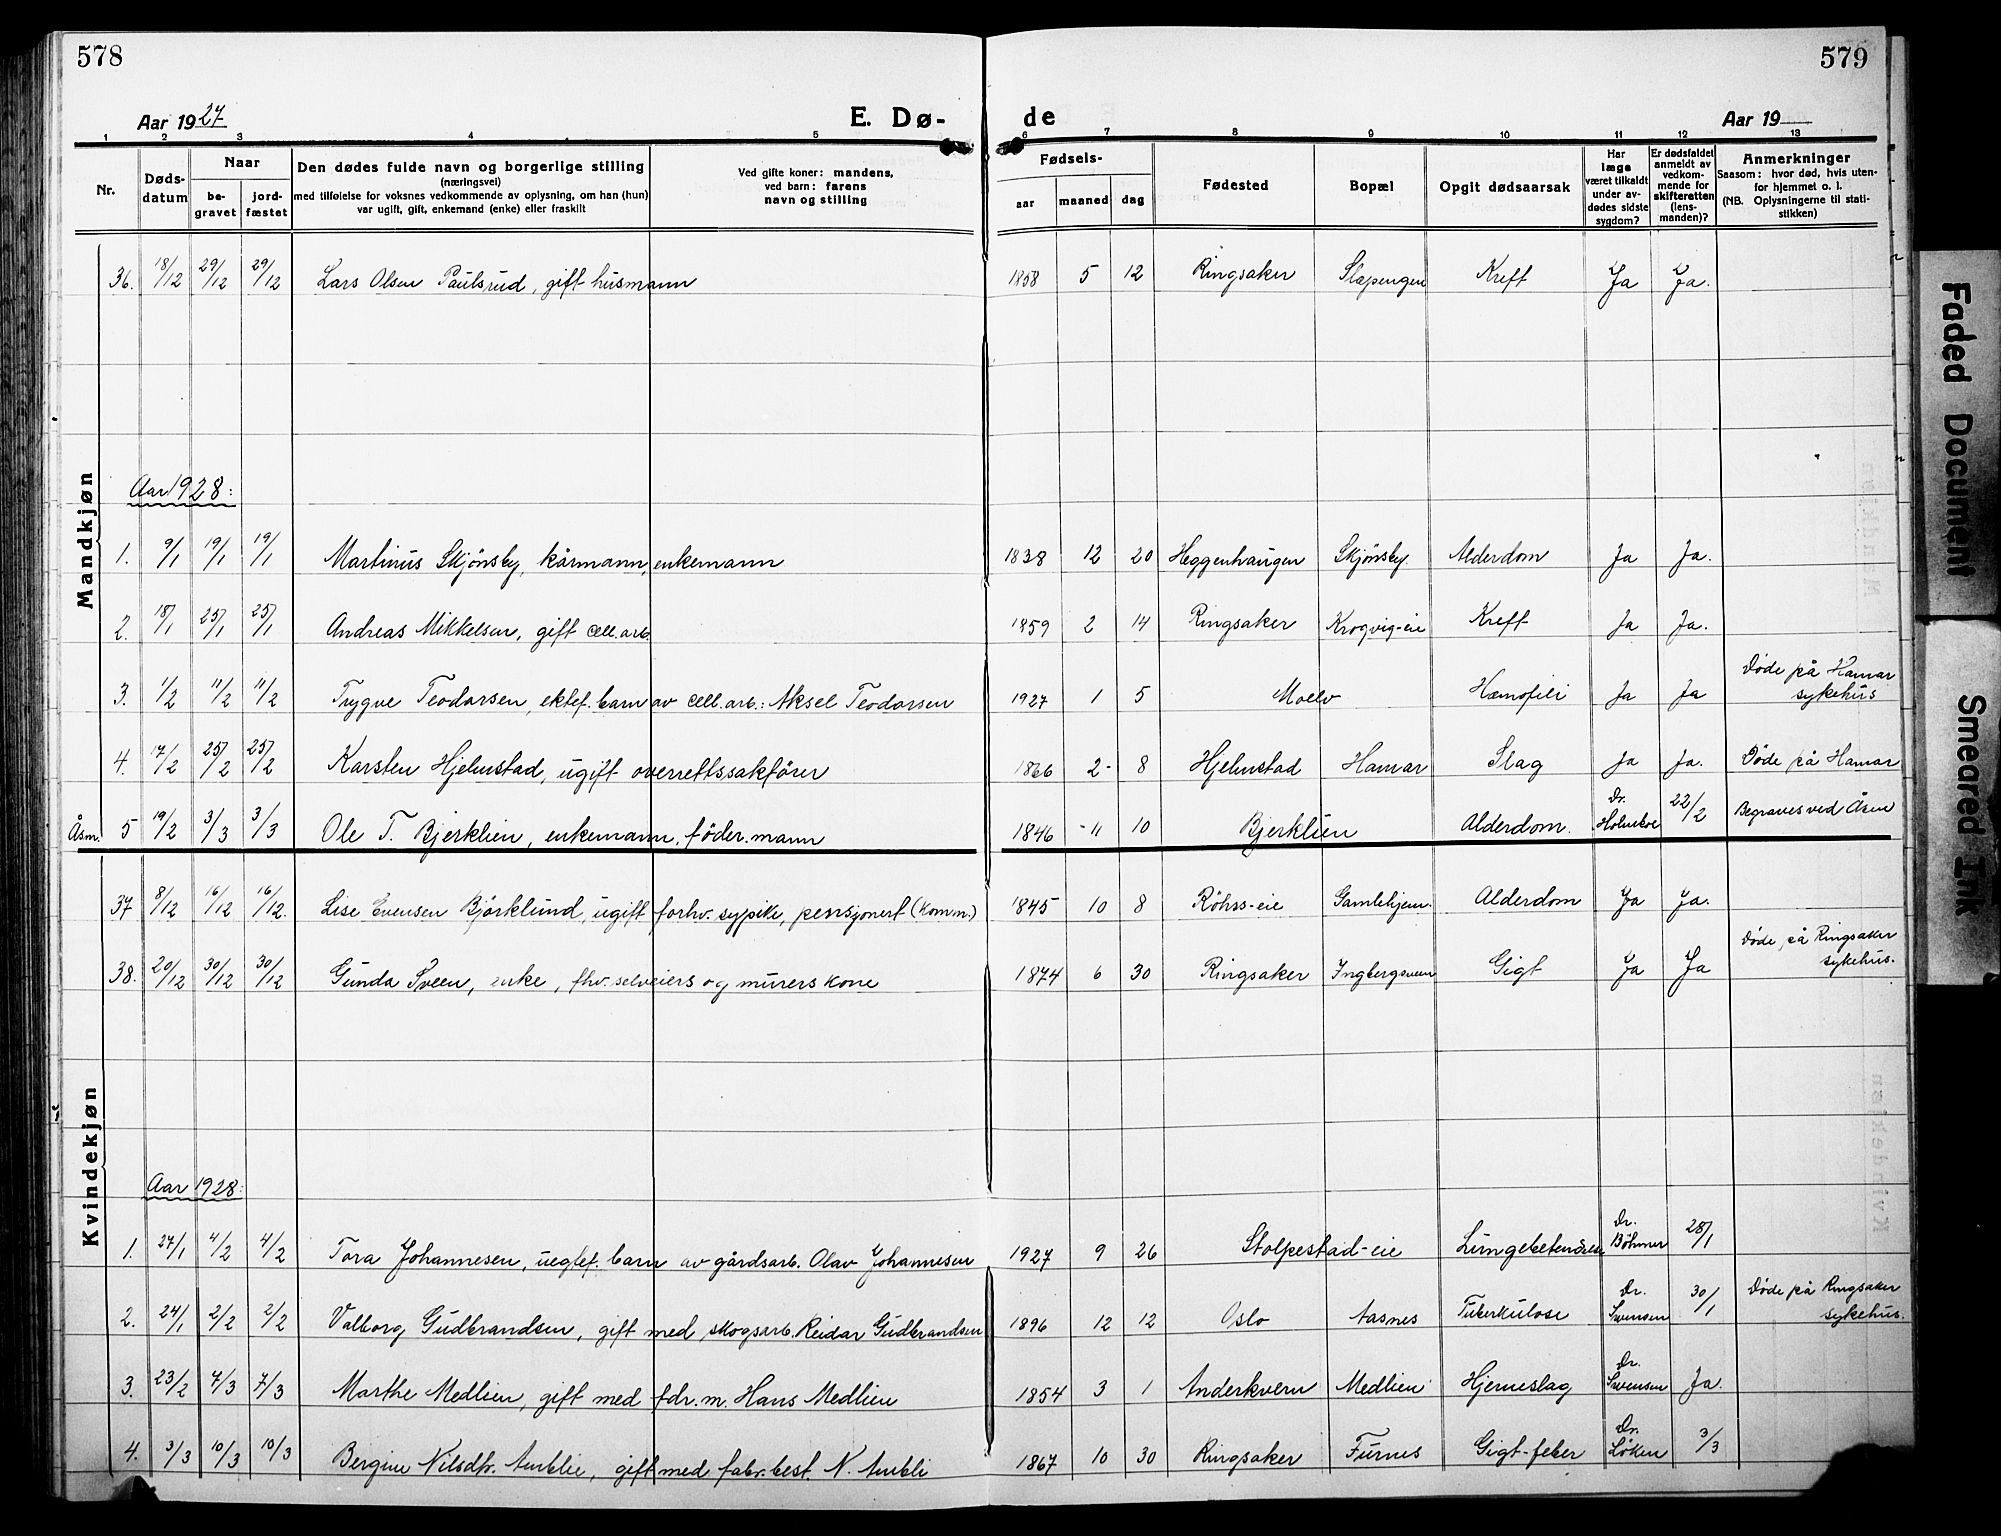 578
579
Aar 1927
E. Dø-
de
Aar 19
1 2 3 4 5 6 7 8 9 10 11 12 13
Nr.
Døds-
datum
Naar
be-
gravet
jord-
fæstet
Den dødes fulde navn og borgerlige stilling
(næringsvei)
med tilføielse for voksnes vedkommende av oplysning, om han (hun)
var ugift, gift, enkemand (enke) eller fraskilt
Ved gifte koner: mandens,
ved barn: farens
navn og stilling
Fødsels-
aar maaned dag
Fødested
Bopæl
Opgit dødsaarsak
Har
læge
været tilkaldt
under av-
dødes sidste
sygdom?
Er dødsfaldet
anmeldt av
vedkom-
mende for
skifteretten
(lens-
manden)?
Anmerkninger
Saasom: hvor død, hvis uten-
for hjemmet o. l.
(NB. Oplysningerne til stati-
stikken)
Mandkjøn
36. 18/12 29/12 29/12 Lars Olsen Paulsrud, gift husmann 1858 5 12 Ringsaker Slapengen Kreft Ja Ja.
Aar 1928:
1. 9/1 19/1 19/1 Martinus Skjønsby, kårmann, enkemann 1838 12 20 Heggenhaugen Skjønsby. Alderdom Ja Ja.
2. 18/1 25/1 25/1 Andreas Mikkelsen, gift cell.arb. 1859 2 14 Ringsaker Krogvig-eie Kreft Ja Ja.
3. 1/2 11/2 11/2 Trygve Teodorsen, ektef. barn av cell. arb.: Aksel Teodorsen 1927 1 5 Moelv Hæmofili Ja Ja Døde på Hamar
sykehus
4. 17/2 25/2 25/2 Karsten Hjelmstad, ugift overrettssakfører 1866 2 8 Hjelmstad Hamar Slag Ja Ja. Døde på Hamar
Åsm. 5 19/2 3/3 3/3 Ole T. Bjerklien, enkemann, föder.mann 1846 11 10 Bjerklien Alderdom. Dr. Holmboe 22/2 Begraves ved Åsm
Kvindekjøn
37 8/12 16/12 16/12. Lise Evensen Björklund, ugift forhv. sypike, pensjonert (komm.) 1845 10 8 Röhss-eie Gamlehjem. Alderdom Ja Ja.
38. 20/12 30/12 30/12 Gunda Sveen, enke, fhv. selveiers og murers kone 1874 6 30 Ringsaker Ingbergsveen Gigt Ja Ja Døde på Ringsaker
sykehus.
Aar 1928:
1. 27/1 4/2 4/2 Tora Johannesen, uegtef. barn av gårdsarb. Olav Johannesen 1927 9 26 Stolpestad-eie Lungebetendelse Dr. Böhmer 28/1
2. 24/1 2/2 2/2 Valborg Gudbrandsen, gift med skogsarb. Reidar Gudbrandsen 1896 12 12 Oslo Aasnes Tuberkulose Dr. Svensen 30/1 Døde på Ringsaker
sykehus.
3. 23/2 7/3 7/3 Marthe Medlien, gift med fdr. m. Hans Medlien 1854 3 1 Anderkvern Medlien Hjerneslag Dr. Svensen Ja.
4. 3/3 10/3 10/3 Bergine Nilsdtr. Amblie, gift med fabr. best. N. Ambli 1867 10 30 Ringsaker Furnes Gigt-feber Dr. Løken 3/3
Faded Document
Smeared Ink